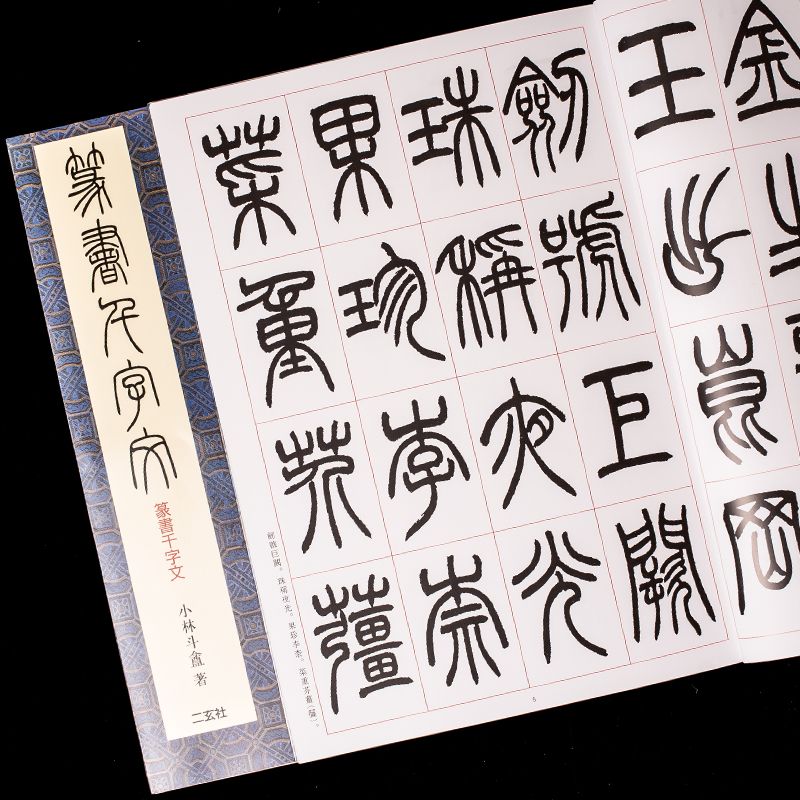 篆書千字文
篆書千字文
小林斗盦 著
二玄社
金
玉出崑岡
劍號巨闕
珠稱夜光
果珍李柰
菜重芥薑
劍號巨闕。珠稱夜光。果珍李柰。菜重芥薑
5